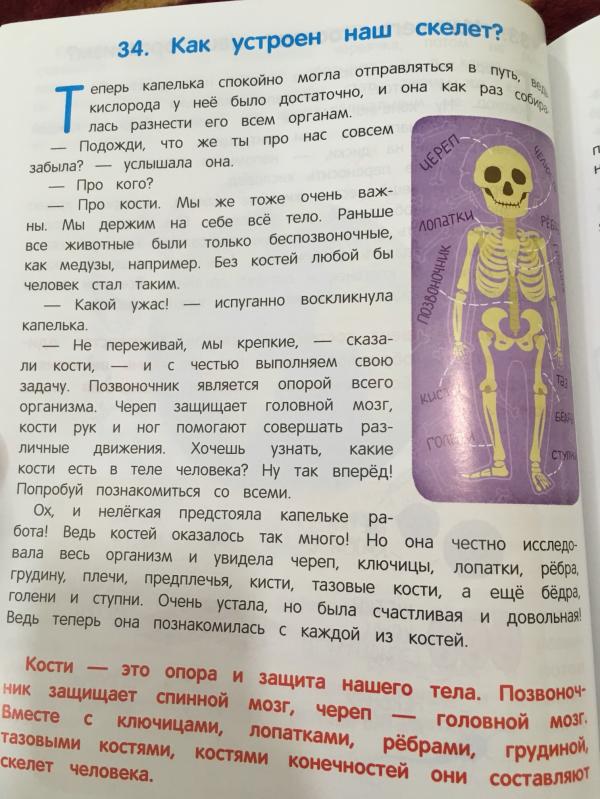 34. Как устроен наш скелет?
Теперь капелька спокойно могла отправляться в путь, ведь
кислорода у неё было достаточно, и она как раз собира-
лась разнести его всем органам.
— Подожди, что же ты про нас совсем
забыла? — услышала она.
— Про кого?
— Про кости. Мы же тоже очень важ-
ны. Мы держим на себе всё тело. Раньше
все животные были только беспозвоночные,
как медузы, например. Без костей любой бы
человек стал таким.
— Какой ужас! — испуганно воскликнула
капелька.
— Не переживай, мы крепкие, — сказа-
ли кости, — и с честью выполняем свою
задачу. Позвоночник является опорой всего
организма. Череп защищает головной мозг,
кости рук и ног помогают совершать раз-
личные движения. Хочешь узнать, какие
кости есть в теле человека? Ну так вперёд!
Попробуй познакомиться со всеми.
Ох, и нелёгкая предстояла капельке ра-
бота! Ведь костей оказалось так много! Но она честно исследо-
вала весь организм и увидела череп, ключицы, лопатки, рёбра,
грудину, плечи, предплечья, кисти, тазовые кости, а ещё бёдра,
голени и ступни. Очень устала, но была счастливая и довольная!
Ведь теперь она познакомилась с каждой из костей.
Кости — это опора и защита нашего тела. Позвоноч-
ник защищает спинной мозг, череп — головной мозг.
Вместе с ключицами, лопатками, рёбрами, грудиной,
тазовыми костями, костями конечностей они составляют
скелет человека.
ЧЕРЕП
ЛОПАТКИ
ПОЗВОНОЧНИК
КИСТИ
ГОЛЕНИ
ТАЗ
БЁДРА
СТУПНИ